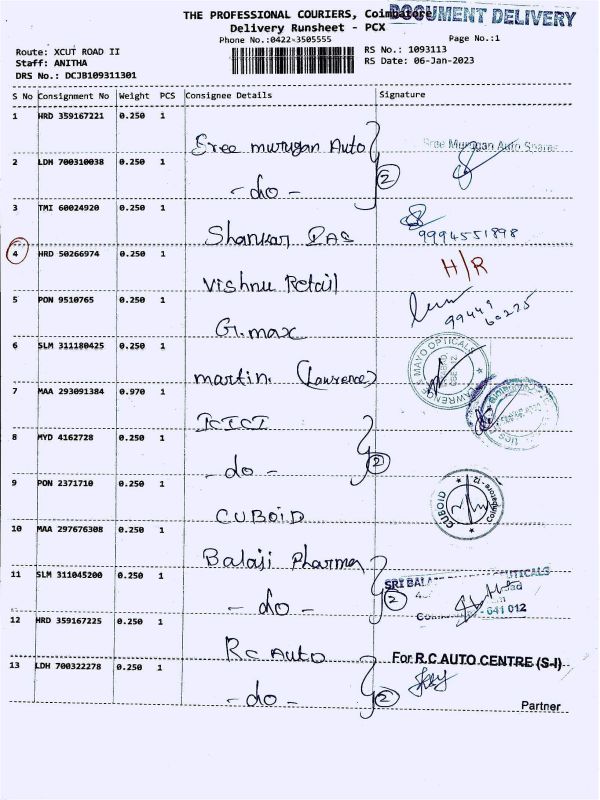 THE PROFESSIONAL COURIERS, Coimbatore
DOCUMENT DELIVERY
Delivery Runsheet - PCX
Phone No.:0422-3505555
Page No.:1
Route: XCUT ROAD II
RS No.: 1093113
Staff: ANITHA
RS Date: 06-Jan-2023
DRS No.: DCJB109311301
S No Consignment No Weight PCS Consignee Details Signature
1 HRD 359167221 0.250 1
Sree murugan Auto
Sree Murugan Auto Spares
2 LDH 700310038 0.250 1
- do -
2
3 TMI 60024920 0.250 1
Shankar
9994551898
4 HRD 50266974 0.250 1
H/R
Vishnu Retail
5 PON 9510765 0.250 1
G.max
99449
60225
6 SLM 311180425 0.250 1
martin. (Lawrence)
LAWRENCE MAYO OPTICALS
7 MAA 293091384 0.970 1
ICICI
8 MYD 4162728 0.250 1
- do -
2
9 PON 2371710 0.250 1
CUBOID
CUBOID
Coimbatore - 12
10 MAA 297676308 0.250 1
Balaji Pharma
11 SLM 311045200 0.250 1
SRI
- do -
2
641 012
12 HRD 359167225 0.250 1
RC Auto
For R.C AUTO CENTRE (S-I)
13 LDH 700322278 0.250 1
- do -
2
Partner